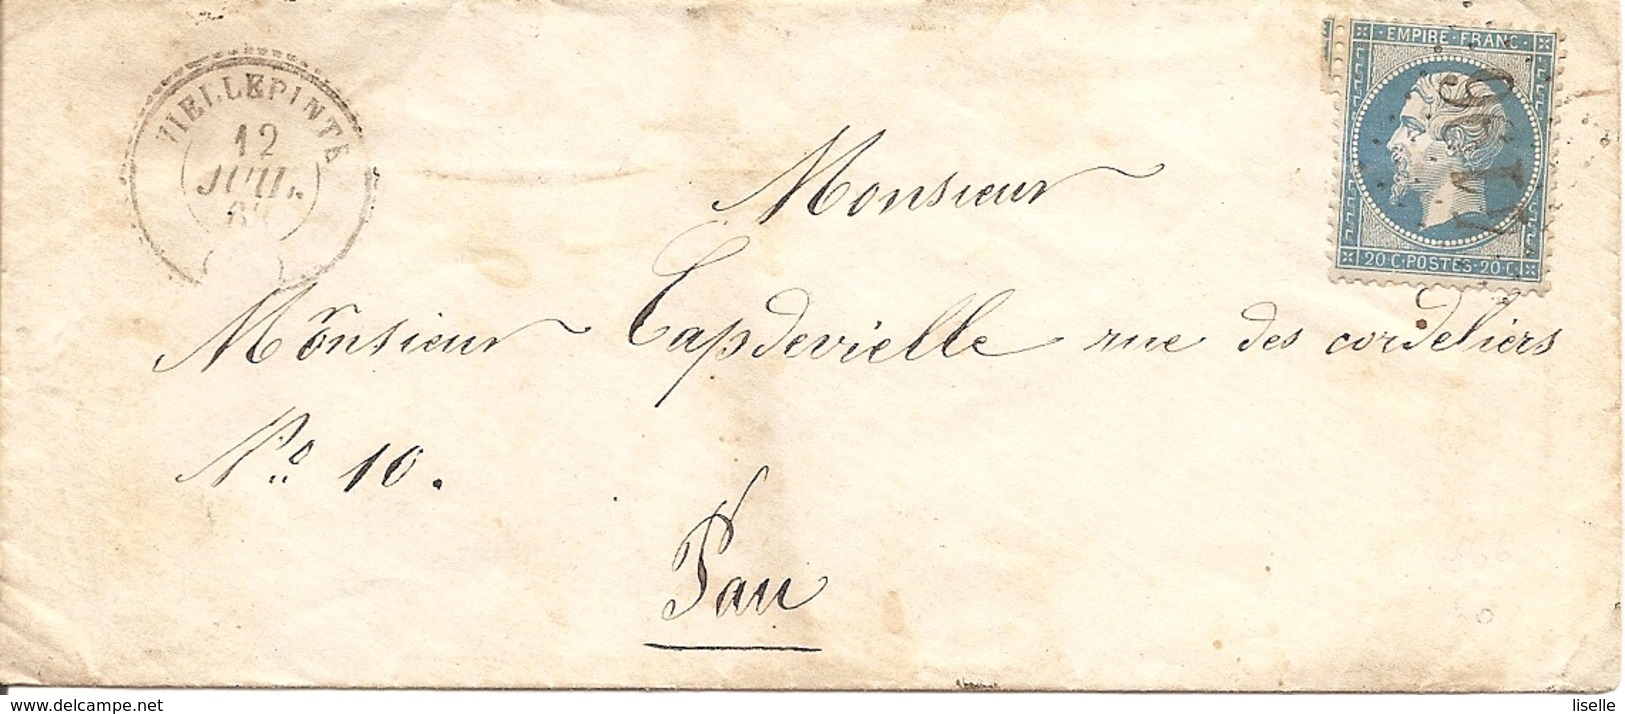 VIELLEPINTE
12
JUIL.
EMPIRE · FRANC
20 C · POSTES · 20 C
Monsieur
Monsieur Capdevielle rue des cordeliers
No 10.
Pau
www.delcampe.net
liselle